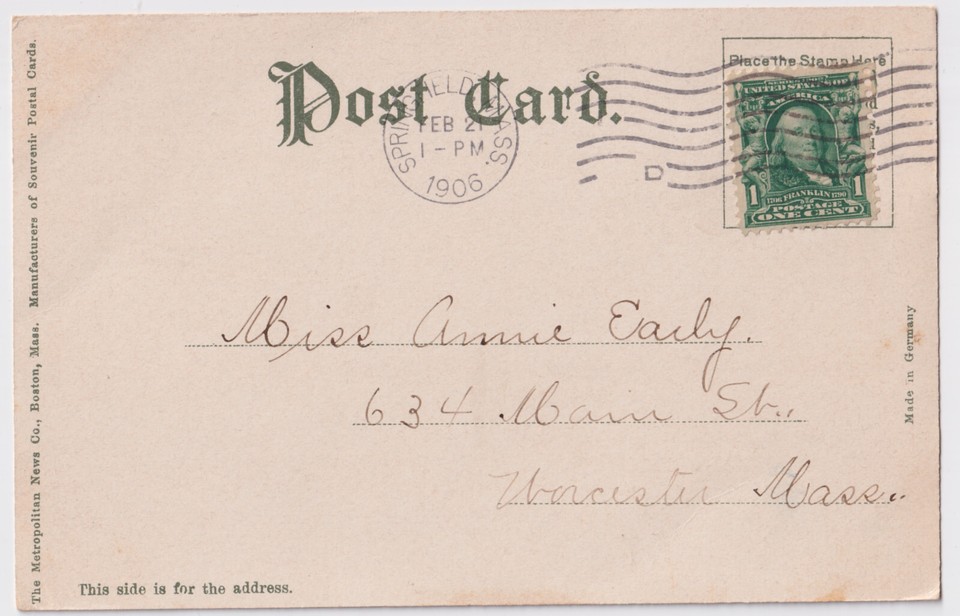 Post Card.
SPRINGFIELD, MASS.
FEB 21
1 - PM
1906
D
Place the Stamp Here
SERIES 1902
UNITED STATES OF
AMERICA
1 1
1706 FRANKLIN 1790
POSTAGE
ONE CENT
Miss Annie Early.
634 Main St.,
Worcester Mass..
This side is for the address.
The Metropolitan News Co., Boston, Mass. Manufacturers of Souvenir Postal Cards.
Made in Germany